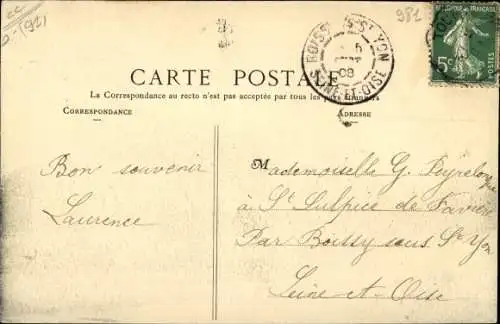 981
REPUBLIQUE FRANÇAISE
5c
POSTES
ST YON
SEINE-ET-OISE
08
CARTE POSTALE
La Correspondance au recto n'est pas acceptée par tous les pays étrangers
CORRESPONDANCE
ADRESSE
Bon souvenir
Laurence
Mademoiselle G.
à St Sulpice de
Par Boissy sous St Yon
Seine-et-Oise